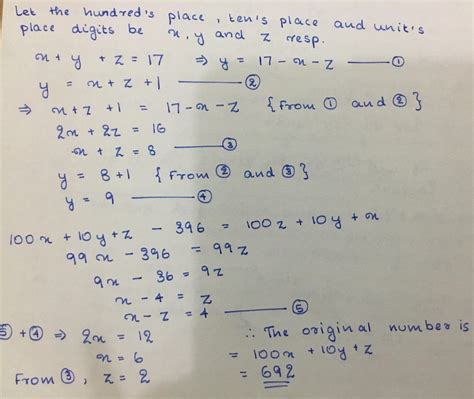 Let the hundred's place, ten's place and unit's
place digits be x, y and z resp.
x + y + z = 17 ⇒ y = 17 - x - z —— ①
y = x + z + 1 —— ②
⇒ x + z + 1 = 17 - x - z {from ① and ②}
2x + 2z = 16
x + z = 8 —— ③
y = 8 + 1 {From ② and ③}
y = 9 —— ④
100x + 10y + z - 396 = 100z + 10y + x
99x - 396 = 99z
9x - 36 = 9z
x - 4 = z
x - z = 4 —— ⑤
⑤ + ④ ⇒ 2x = 12
x = 6
From ③, z = 2
∴ The original number is
= 100x + 10y + z
= 692